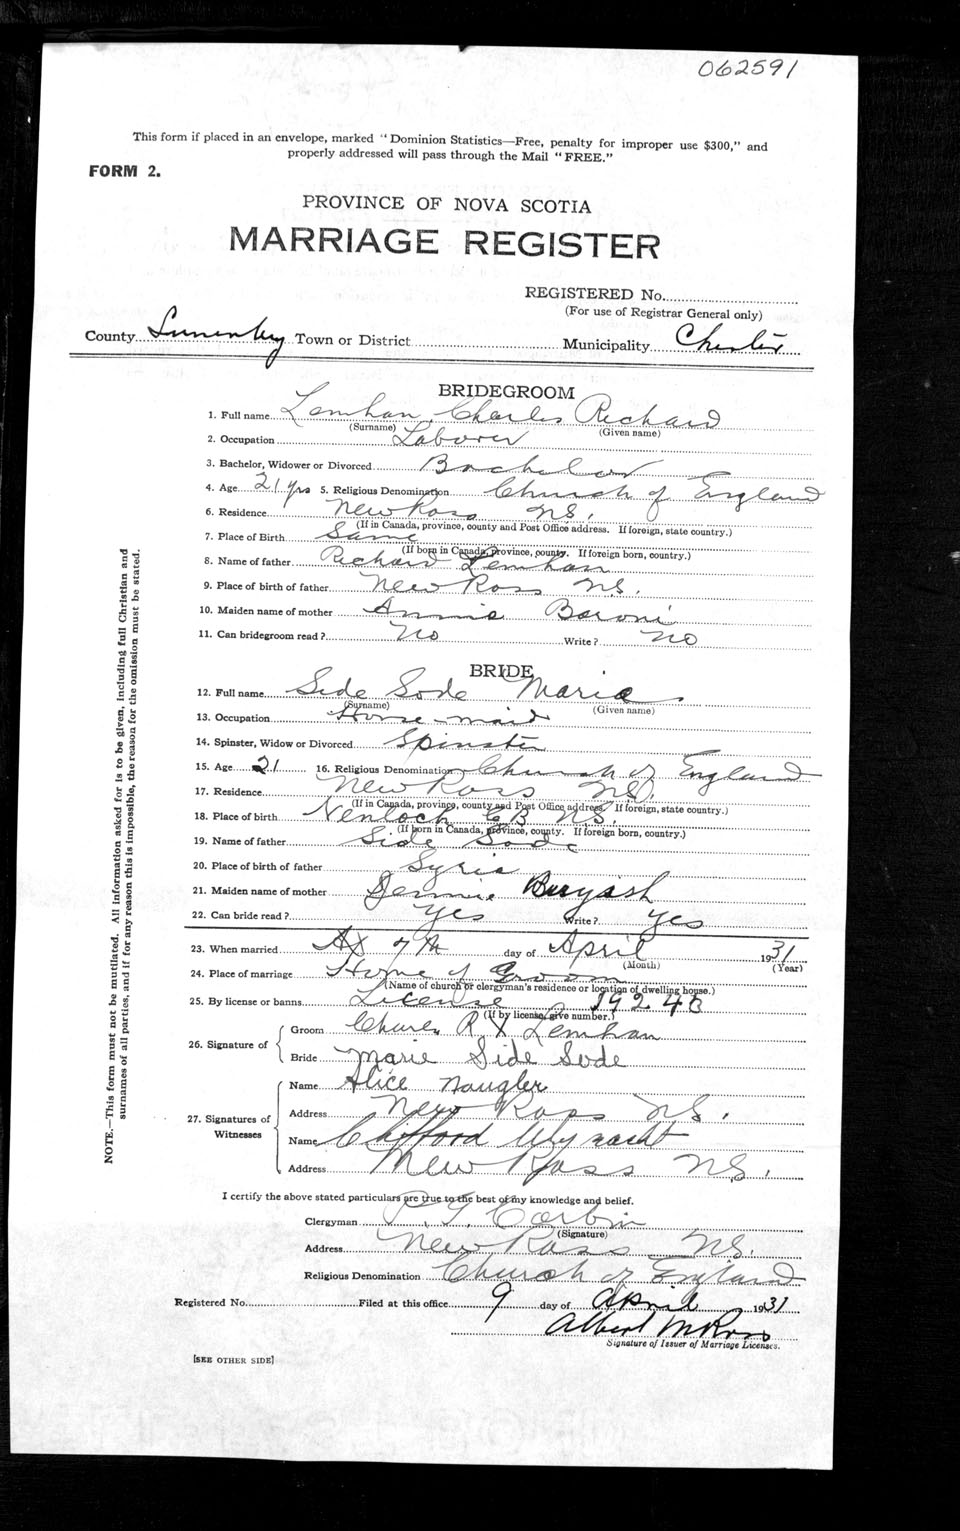 062591
This form if placed in an envelope, marked "Dominion Statistics—Free, penalty for improper use $300," and
properly addressed will pass through the Mail "FREE."
FORM 2.
PROVINCE OF NOVA SCOTIA
MARRIAGE REGISTER
REGISTERED No.
(For use of Registrar General only)
County Lunenburg Town or District Municipality Chester
BRIDEGROOM
1. Full name Lemhan, Charles Richard
(Surname) (Given name)
2. Occupation Laborer
3. Bachelor, Widower or Divorced Bachelor
4. Age 21 yrs 5. Religious Denomination Church of England
6. Residence New Ross N.S.
(If in Canada, province, county and Post Office address. If foreign, state country.)
7. Place of Birth Same
(If born in Canada, province, county. If foreign born, country.)
8. Name of father Richard Lemhan
9. Place of birth of father New Ross N.S.
10. Maiden name of mother Annie Baroni
11. Can bridegroom read? No Write? No
BRIDE
12. Full name Side Sode Marie
(Surname) (Given name)
13. Occupation House-maid
14. Spinster, Widow or Divorced Spinster
15. Age 21 16. Religious Denomination Church of England
17. Residence New Ross N.S.
(If in Canada, province, county and Post Office address. If foreign, state country.)
18. Place of birth C B N.S.
(If born in Canada, province, county. If foreign born, country.)
19. Name of father Side Sode
20. Place of birth of father Syria
21. Maiden name of mother Jennie
22. Can bride read? Yes Write? Yes
23. When married 7th day of April 1931
(Month) (Year)
24. Place of marriage Home of Groom
(Name of church or clergyman's residence or location of dwelling house.)
25. By license or banns License 19240
(If by license, give number.)
26. Signature of
Groom R X Lemhan
Bride Marie Side Sode
27. Signatures of Witnesses
Name Alice Naugler
Address New Ross N.S.
Name Clifford Whynacht
Address New Ross N.S.
I certify the above stated particulars are true to the best of my knowledge and belief.
Clergyman Corbin
(Signature)
Address New Ross N.S.
Religious Denomination Church of England
Registered No. Filed at this office 9 day of April 1931
Albert M Ross
Signature of Issuer of Marriage Licenses.
[SEE OTHER SIDE]
NOTE.—This form must not be mutilated. All information asked for is to be given, including full Christian and
surnames of all parties, and if for any reason this is impossible, the reason for the omission must be stated.